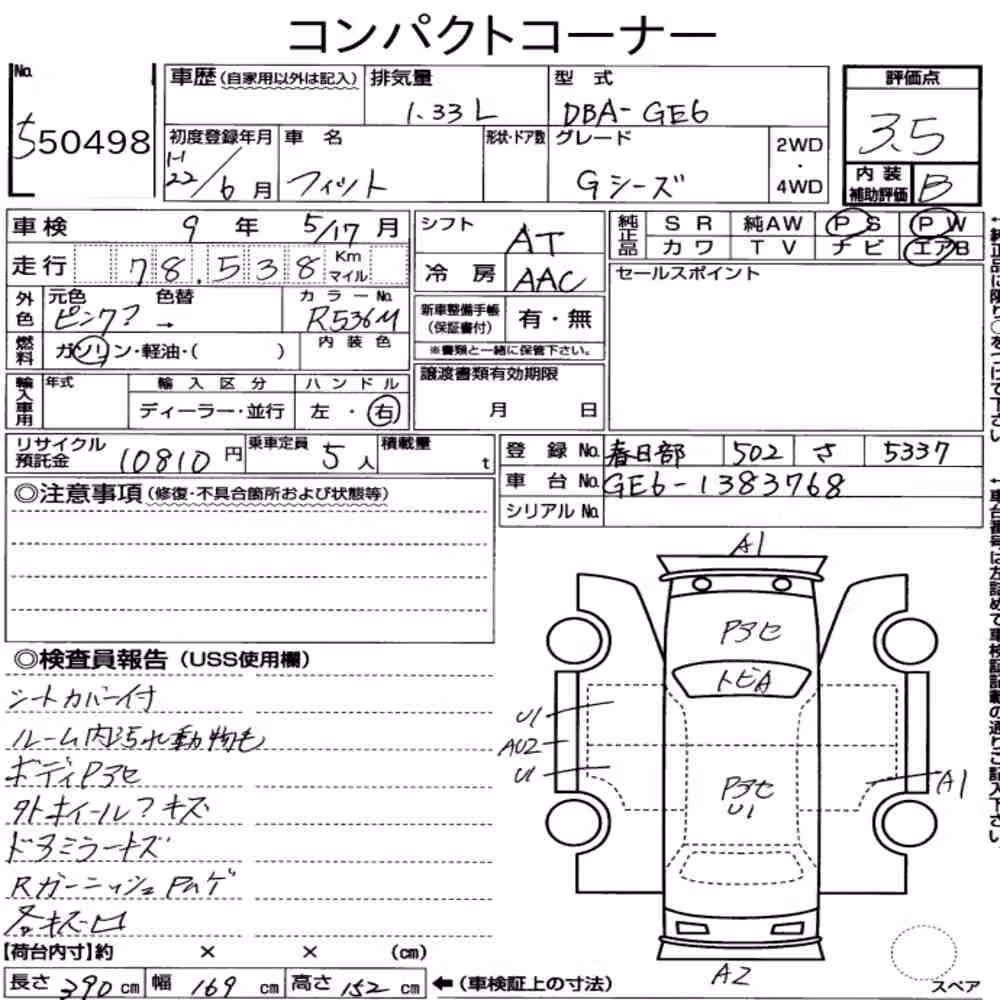 コンパクトコーナー
No. 550498
車歴(自家用以外は記入) 排気量 1.33L 型式 DBA-GE6
評価点 3.5
初度登録年月 H22/6月 車名 フィット 形状・ドア数 グレード Gシーズ 2WD・4WD
内装補助評価 B
車検 9年 5/17月
シフト AT
純正品 SR 純AW PS PW
カワ TV ナビ エアB
走行 78,538 Km マイル
冷房 AAC
セールスポイント
外色 元色 ピンク? 色替 → カラーNo. R536M
新車整備手帳(保証書付) 有・無
※書類と一緒に保管下さい。
燃料 ガソリン・軽油・( ) 内装色
輸入車用 年式 輸入区分 ハンドル
ディーラー・並行 左・右
譲渡書類有効期限
月 日
リサイクル預託金 10810円 乗車定員 5人 積載量 t
登録No. 春日部 502 さ 5337
車台No. GE6-1383768
シリアルNo.
◎注意事項(修復・不具合箇所および状態等)
◎検査員報告(USS使用欄)
シートカバー付
ルーム内汚れ動物毛
ボディPアセ
タトホイール?キズ
ドアミラーキズ
RガーニッシュPハゲ
各キズ凹
A1
Pアセ
トビA
U1
AU2
U1
Pアセ
U1
A1
A2
【荷台内寸】約 × × (cm)
長さ 390 cm 幅 169 cm 高さ 152 cm ←(車検証上の寸法)
スペア
↑純正品に限り○をつけて下さい
↑車台番号は左詰めで車検証記載の通りご記入下さい。